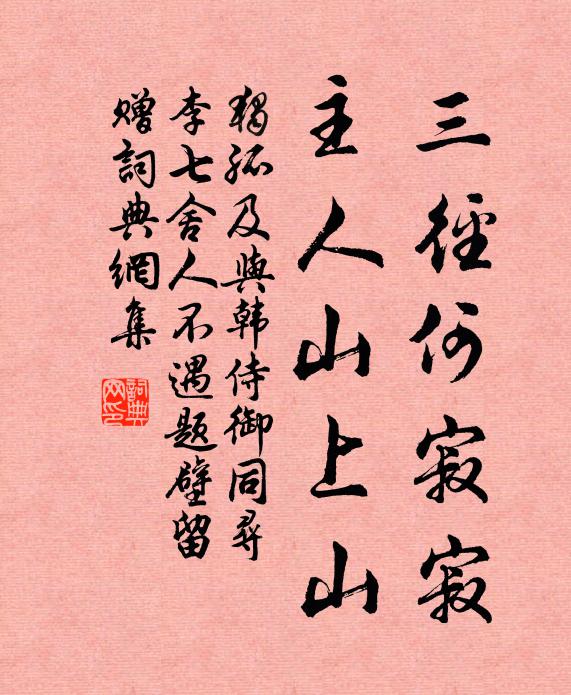 三徑何寂寂
主人山上山
獨孤及與韓侍御同尋
李七舍人不遇題壁留
贈詞典網集
詞典
网印